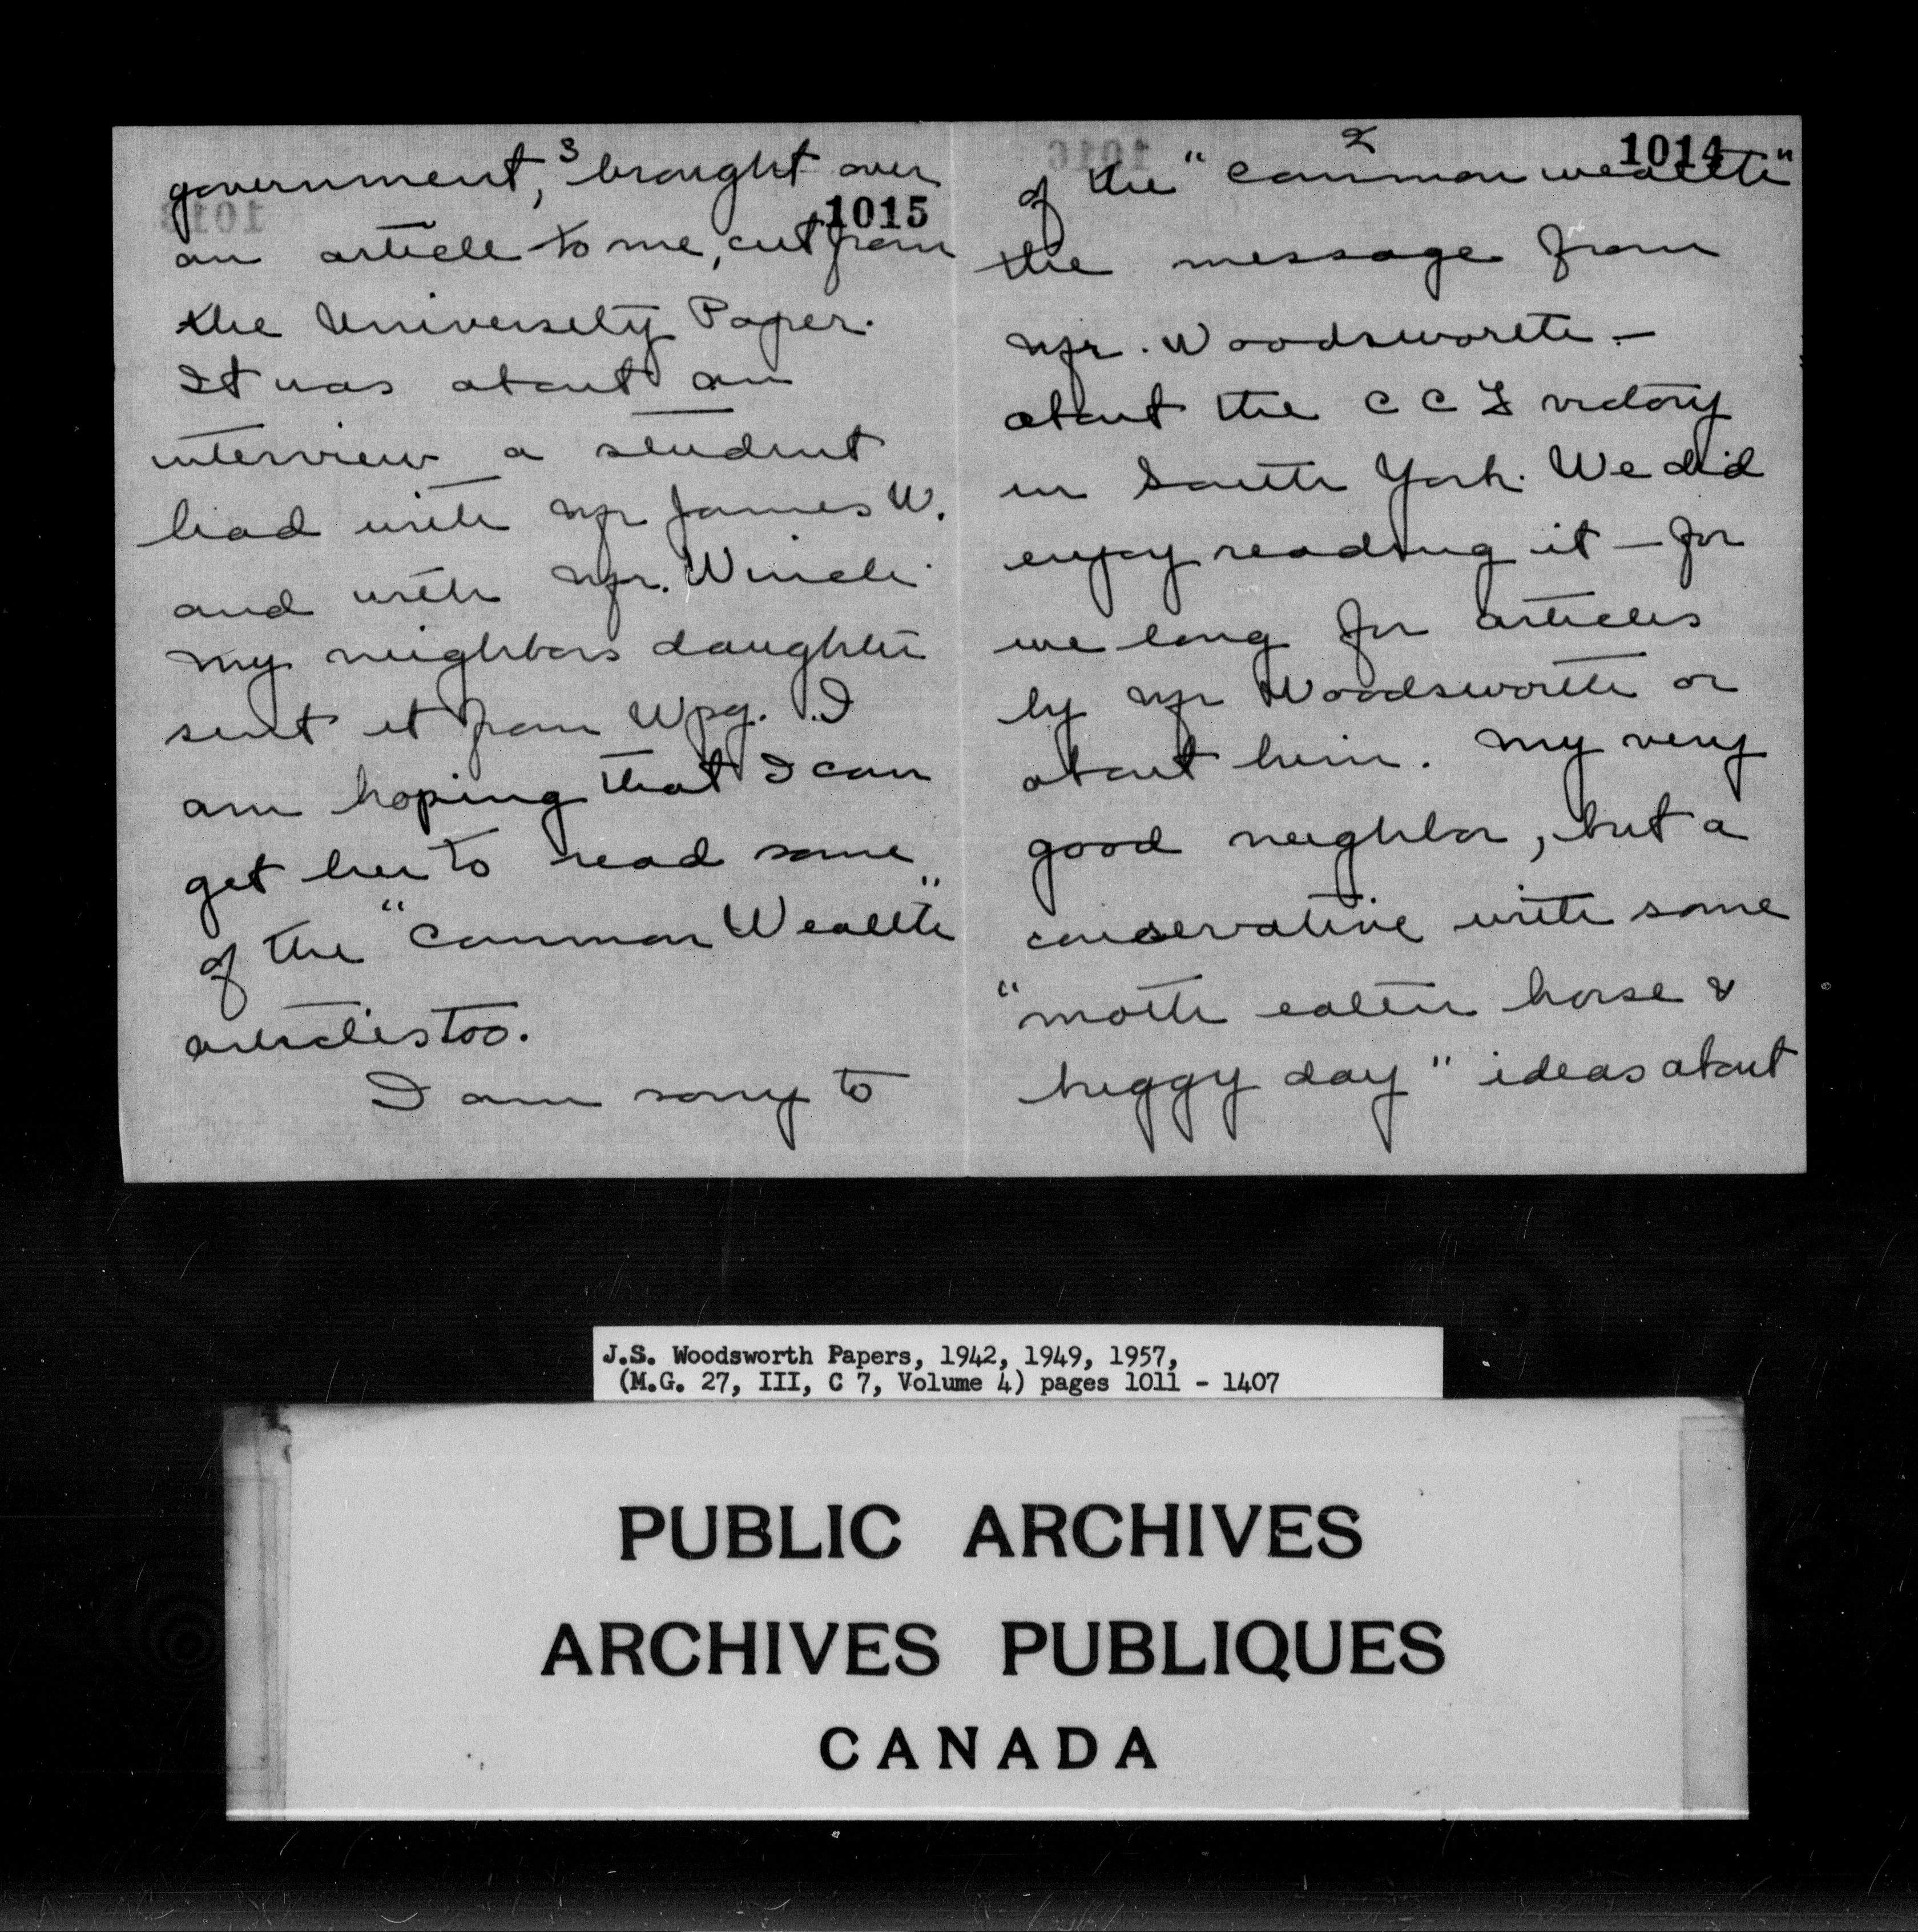 2
1014
of the "Common wealth"
the message from
Mr. Woodsworth —
about the C C F victory
in South York. We did
enjoy reading it — for
we long for articles
by Mr Woodsworth or
about him. My very
good neighbor, but a
conservative with some
"moth eaten horse &
buggy day" ideas about
3
government, brought over
1015
an article to me, cut from
the University Paper.
It was about an
interview a student
had with Mr James W.
and with Mr. Winch.
My neighbors daughter
sent it from Wpg. I
am hoping that I can
get her to read some
of the "Common Wealth"
articles too.
I am sorry to
J.S. Woodsworth Papers, 1942, 1949, 1957,
(M.G. 27, III, C 7, Volume 4) pages 1011 - 1407
PUBLIC ARCHIVES
ARCHIVES PUBLIQUES
CANADA